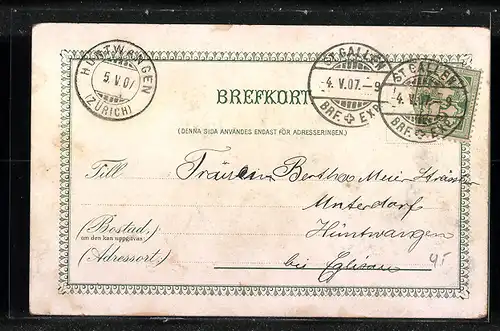 HÜNTWANGEN
5.V.07
(ZÜRICH)
ST. GALLEN
-4.V.07.-9
BRF. EXP.
ST. GALLEN
-4.V.07.-9
BRF. EXP.
BREFKORT
(DENNA SIDA ANVÄNDES ENDAST FÖR ADRESSERINGEN.)
Till Fräulein Bertha Meier
Unterdorf
(Bostad, Hüntwangen
om den kan uppgifvas)
(Adressort.) bei Eglisau
4.-